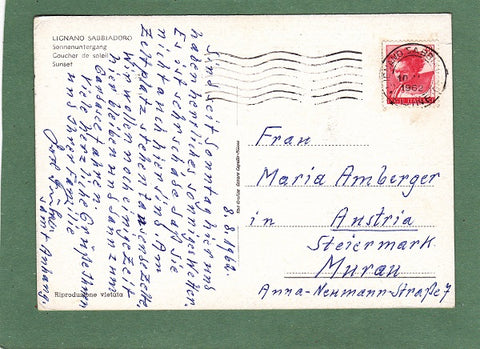 LIGNANO SABBIADORO
Sonnenuntergang
Coucher de soleil
Sunset
8.8.1962
Sind seit Sonntag hier und
haben herrliches sonniges Wetter.
Es ist sehr schade daß Sie
nicht auch hier sind. Am
Zeltplatz stehen tausende Zelte,
Wir wollen noch einige Zeit
hier bleiben und dann zum
Gardasee fahren.
Viele herzliche Grüße Ihnen
und Ihrer Familie
samt Anhang.
Riproduzione vietata
LIGNANO SABB
1962
ITALIANE
Frau
Maria Amberger
in Austria
Steiermark
Murau
Anna-Neumann-Straße 7